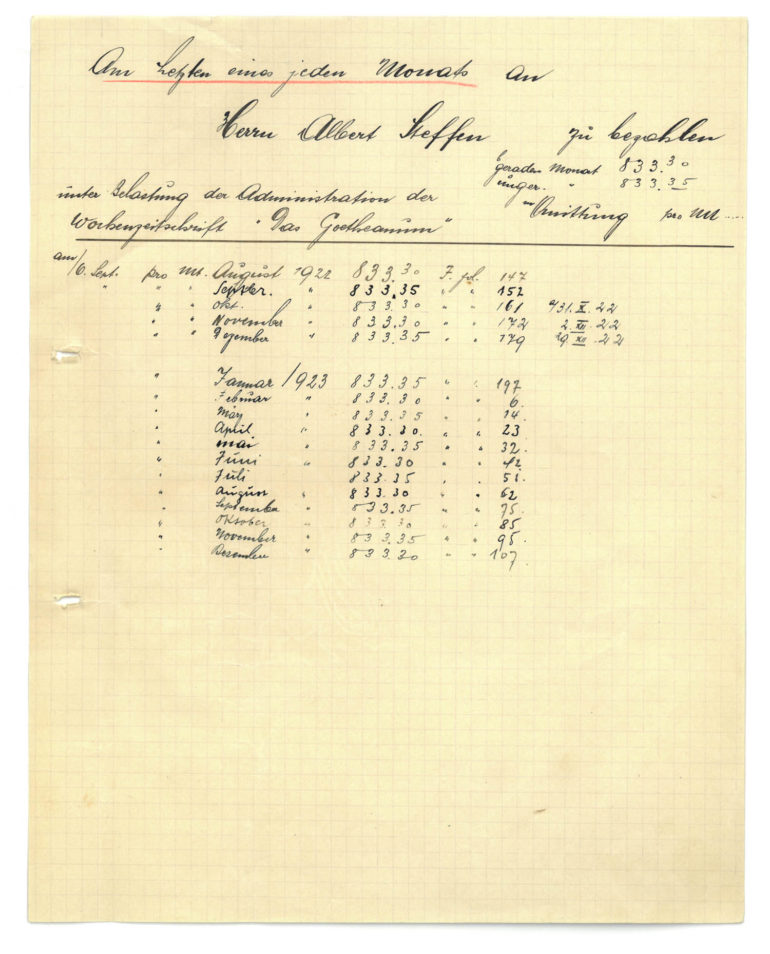 Am Letzten eines jeden Monats an
Herrn Albert Steffen zu bezahlen
geraden Monat 833.30
unger. " 833.35
unter Belastung der Administration der
Wochenzeitschrift "Das Goetheanum"
Quittung pro Mt.....
am/6. Sept. pro Mt. August 1922 833.30 F. fol. 147
" " " Septber. " 833.35 " " 152
" " Okt. " 833.30 " " 161 31.X.22
" " November " 833.30 " " 172 2.XII.22
" " Dezember " 833.35 " " 179 29.XII.22
" Januar /1923 833.35 " " 197
" Februar " 833.30 " " 6.
" März " 833.35 " " 14.
" April " 833.30. " " 23
" mai " 833.35 " " 32.
" Juni " 833.30 " " 42
" Juli 833.35 " " 51.
" August " 833.30 " " 62
" September " 833.35 " " 75.
" Oktober " 833.30 " " 85
" November " 833.35 " " 95.
" Dezember " 833.30 " " 107